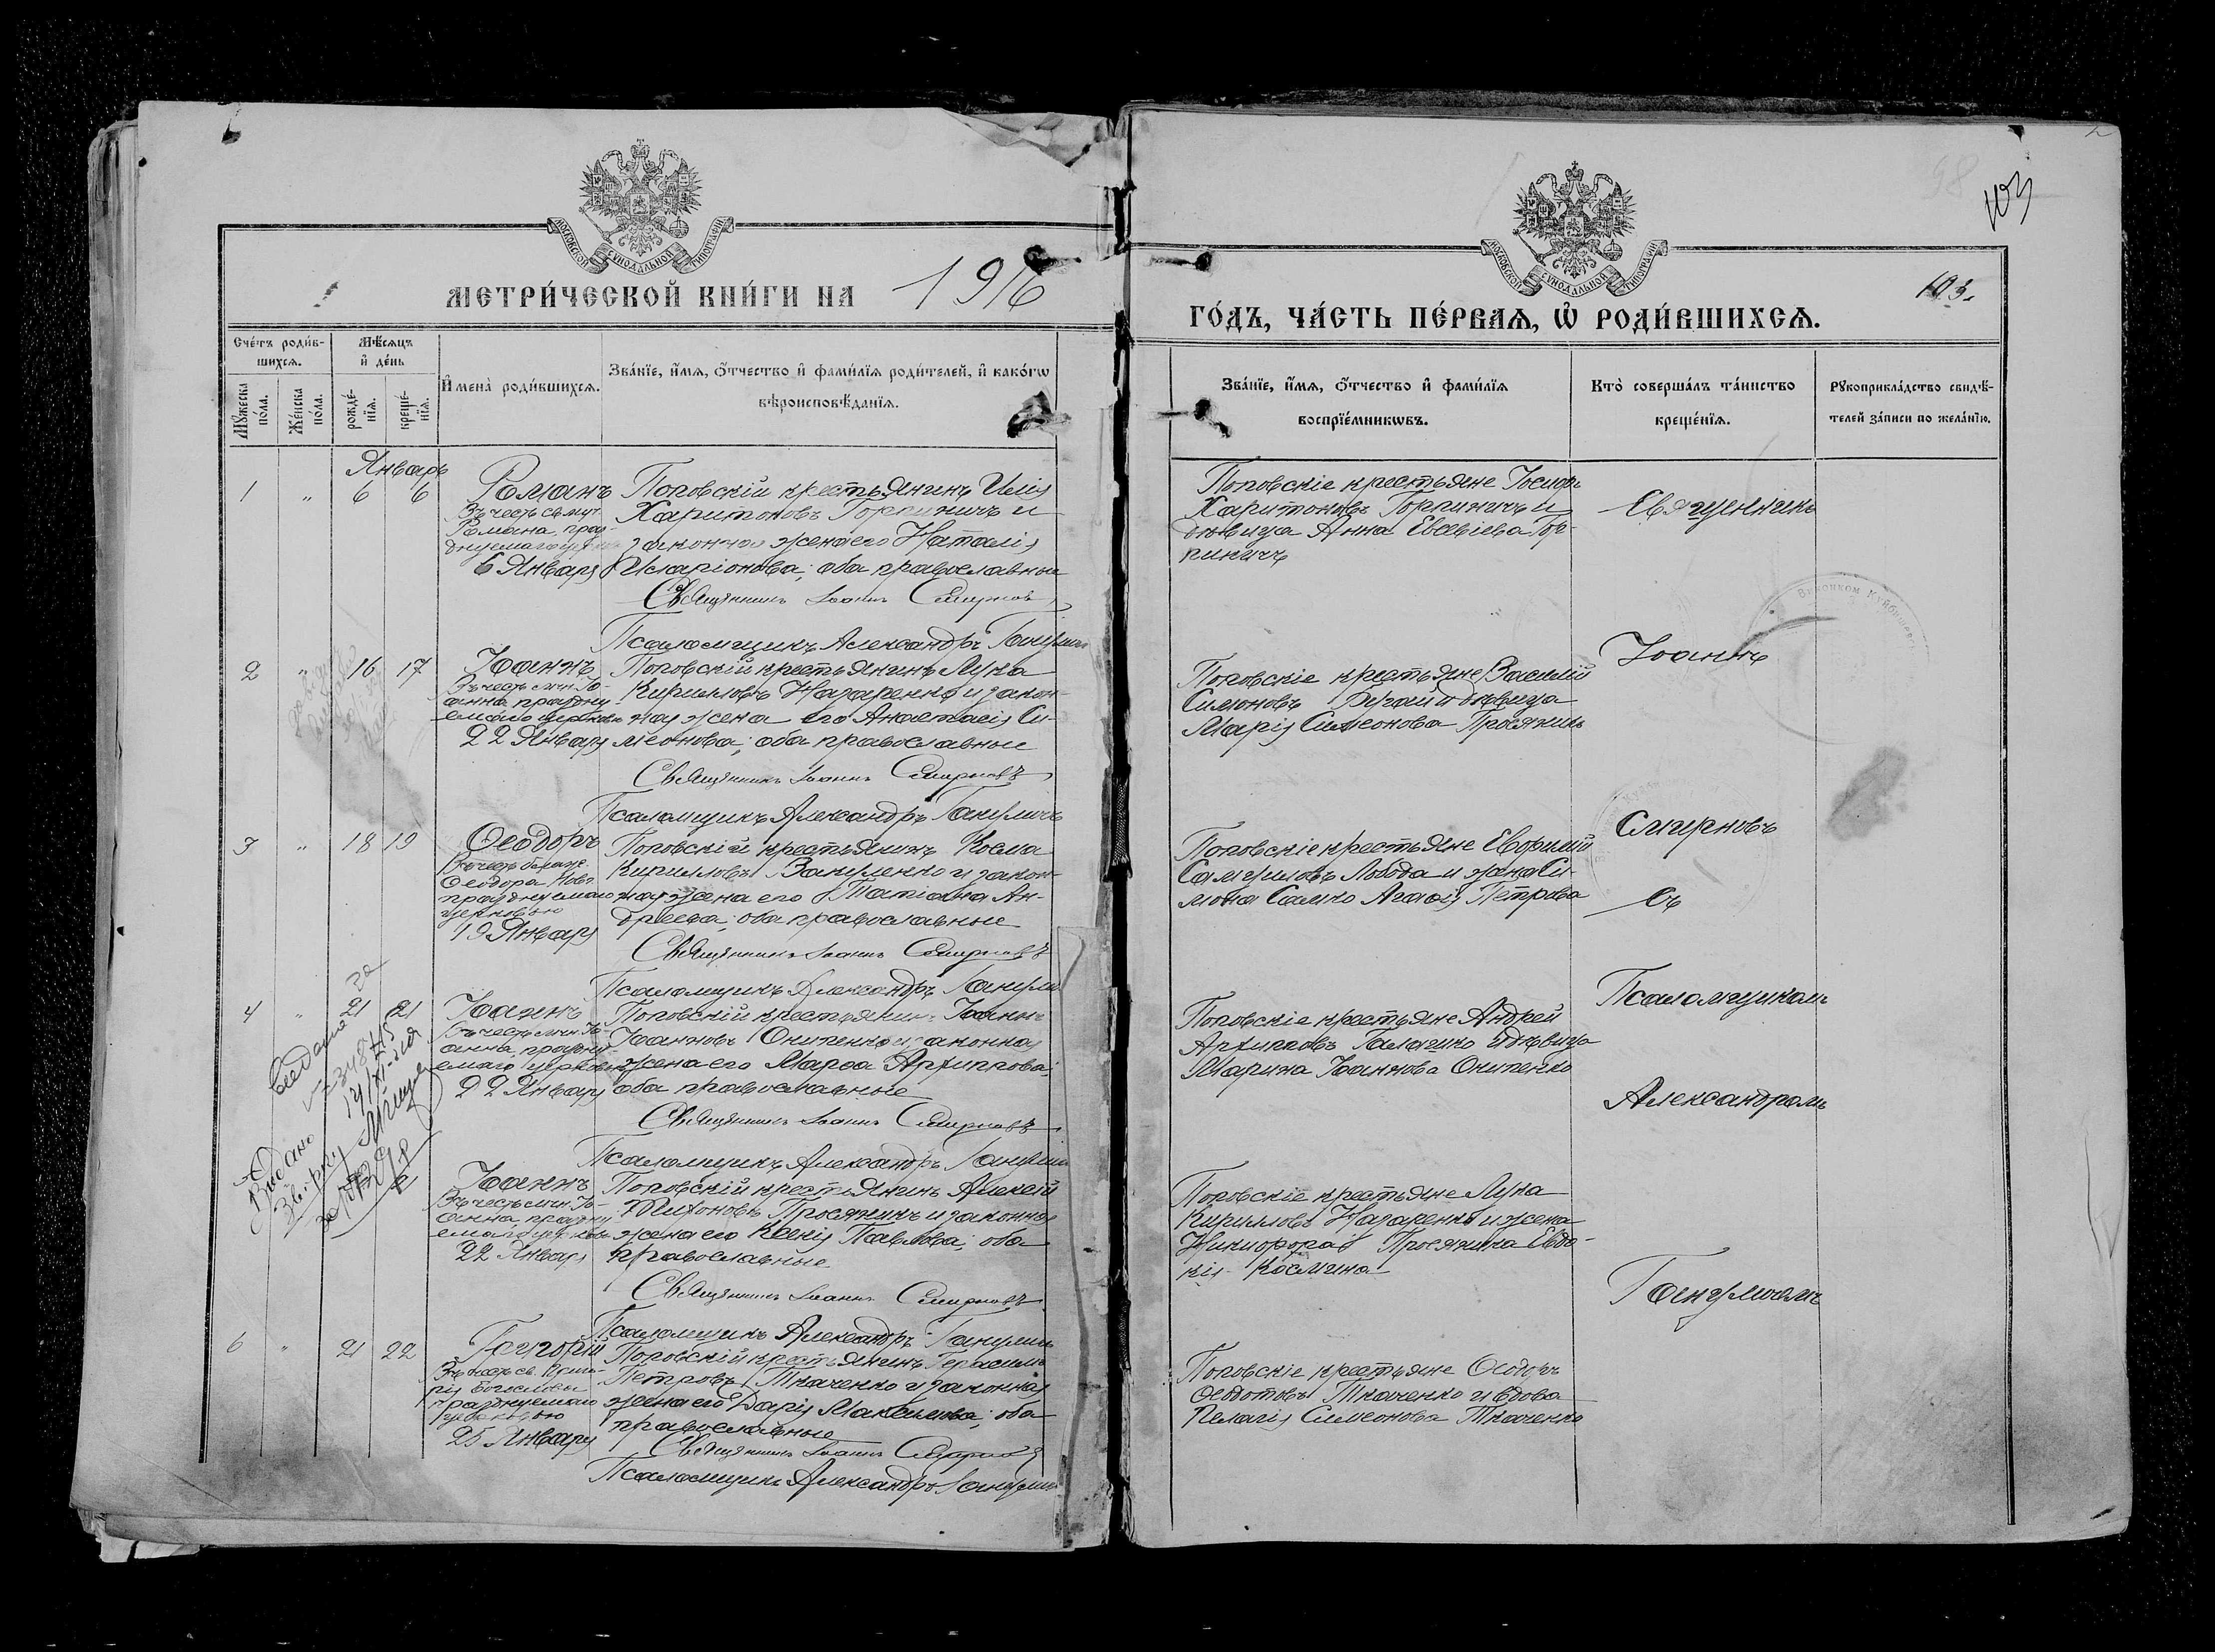 МОСКОВСКОЙ СѴНОДАЛЬНОЙ ТИПОГРАФІИ
МЕТРИ́ЧЕСКОЙ КНИ́ГИ НА 1916
Сче́тъ роди́в-
шихсѧ.
Мѣ́сѧцъ
и҆ де́нь
Мꙋ́жеска
по́ла.
Же́нска
по́ла.
рожде́-
нїѧ.
креще́-
нїѧ.
И҆мена̀ роди́вшихсѧ.
Зва́нїе, и҆́мѧ, ѻ҆́тчество и҆ фами́лїѧ роди́телей, и҆ како́гѡ
вѣроисповѣ́данїѧ.
Январь
1 " 6 6
Романъ
Въ честь св. муч.
Романа, праз-
6 Января
Поповскій крестьянинъ Илія
Харитоновъ Горпиничъ и
законная жена его Наталія
Иларіонова; оба православные
Священникъ Іоаннъ Смирновъ
Псаломщикъ Александръ
2 " 16 17
Іоаннъ
Въ честь мч. Іо-
анна, праздну-
емаго церковью
22 Января
Поповскій крестьянинъ Лука
Кирилловъ Назаренко и закон-
ная жена его Анастасія Си-
меонова; оба православные
Священникъ Іоаннъ Смирновъ
Псаломщикъ Александръ
3 " 18 19
Ѳеодоръ
Въ честь блаж.
Ѳеодора, Нов.
празднуемаго
церковью
19 Января
Поповскій крестьянинъ Косма
Кирилловъ и закон-
ная жена его Татіана Ан-
дреева; оба православные
Священникъ Іоаннъ Смирновъ
Псаломщикъ Александръ
4 " 21 21
Іоаннъ
Въ честь мч. Іо-
анна, праздну-
емаго церковью
22 Января
Поповскій крестьянинъ Іоаннъ
Іоанновъ Онипенко и законная
жена его Марѳа Архиппова;
оба православные
Священникъ Іоаннъ Смирновъ
Псаломщикъ Александръ
Іоаннъ
Въ честь мч. Іо-
анна, праздну-
емаго церковью
22 Января
Поповскій крестьянинъ Алексій
Тихоновъ Просяникъ и законная
жена его Ксенія Павлова; оба
православные
Священникъ Іоаннъ Смирновъ
Псаломщикъ Александръ
6 " 21 22
Григорій
Въ честь св. Григо-
рія Богослова
празднуемаго
церковью
25 Января
Поповскій крестьянинъ Герасимъ
Петровъ Ткаченко и законная
жена его Дарія Максимова; оба
православные
Священникъ Іоаннъ Смирновъ
Псаломщикъ Александръ
МОСКОВСКОЙ СѴНОДАЛЬНОЙ ТИПОГРАФІИ
98
103
103.
ГО́ДЪ, ЧА́СТЬ ПЕ́РВАѦ, Ѡ҆ РОДИ́ВШИХСѦ.
Зва́нїе, и҆́мѧ, ѻ҆́тчество и҆ фами́лїѧ
воспрїе́мникѡвъ.
Кто̀ соверша́лъ та́инство
креще́нїѧ.
Рꙋкоприкла́дство свидѣ́-
телей за́писи по жела́нїю.
Поповскіе крестьяне
Харитоновъ Горпиничъ и
дѣвица Анна Евсевіева Гор-
пиничъ
Священникъ
Поповскіе крестьяне Василій
Симоновъ и дѣвица
Марія Симеонова Просяникъ
Іоаннъ
Поповскіе крестьяне Евфимій
Самуиловъ Лобода и жена Си-
мона Сачко Агафія Петрова
Смирновъ
Съ
Поповскіе крестьяне Андрей
Архипповъ и дѣвица
Марина Іоаннова Онипенко
Псаломщикомъ
Александромъ
Поповскіе крестьяне Лука
Кирилловъ Назаренко и жена
Никифора Просяника Евдо-
кія Космина
Поповскіе крестьяне Ѳеодоръ
Ѳеодотовъ Ткаченко и вдова
Пелагія Симеонова Ткаченко